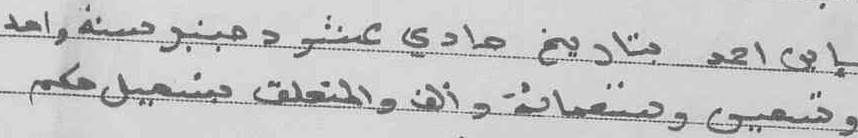 بابن احمد بتاريخ حادي عشر دجنبر سنة واحد
وتسعين وتسعمائة وألف والمتعلق بتسجيل حكم